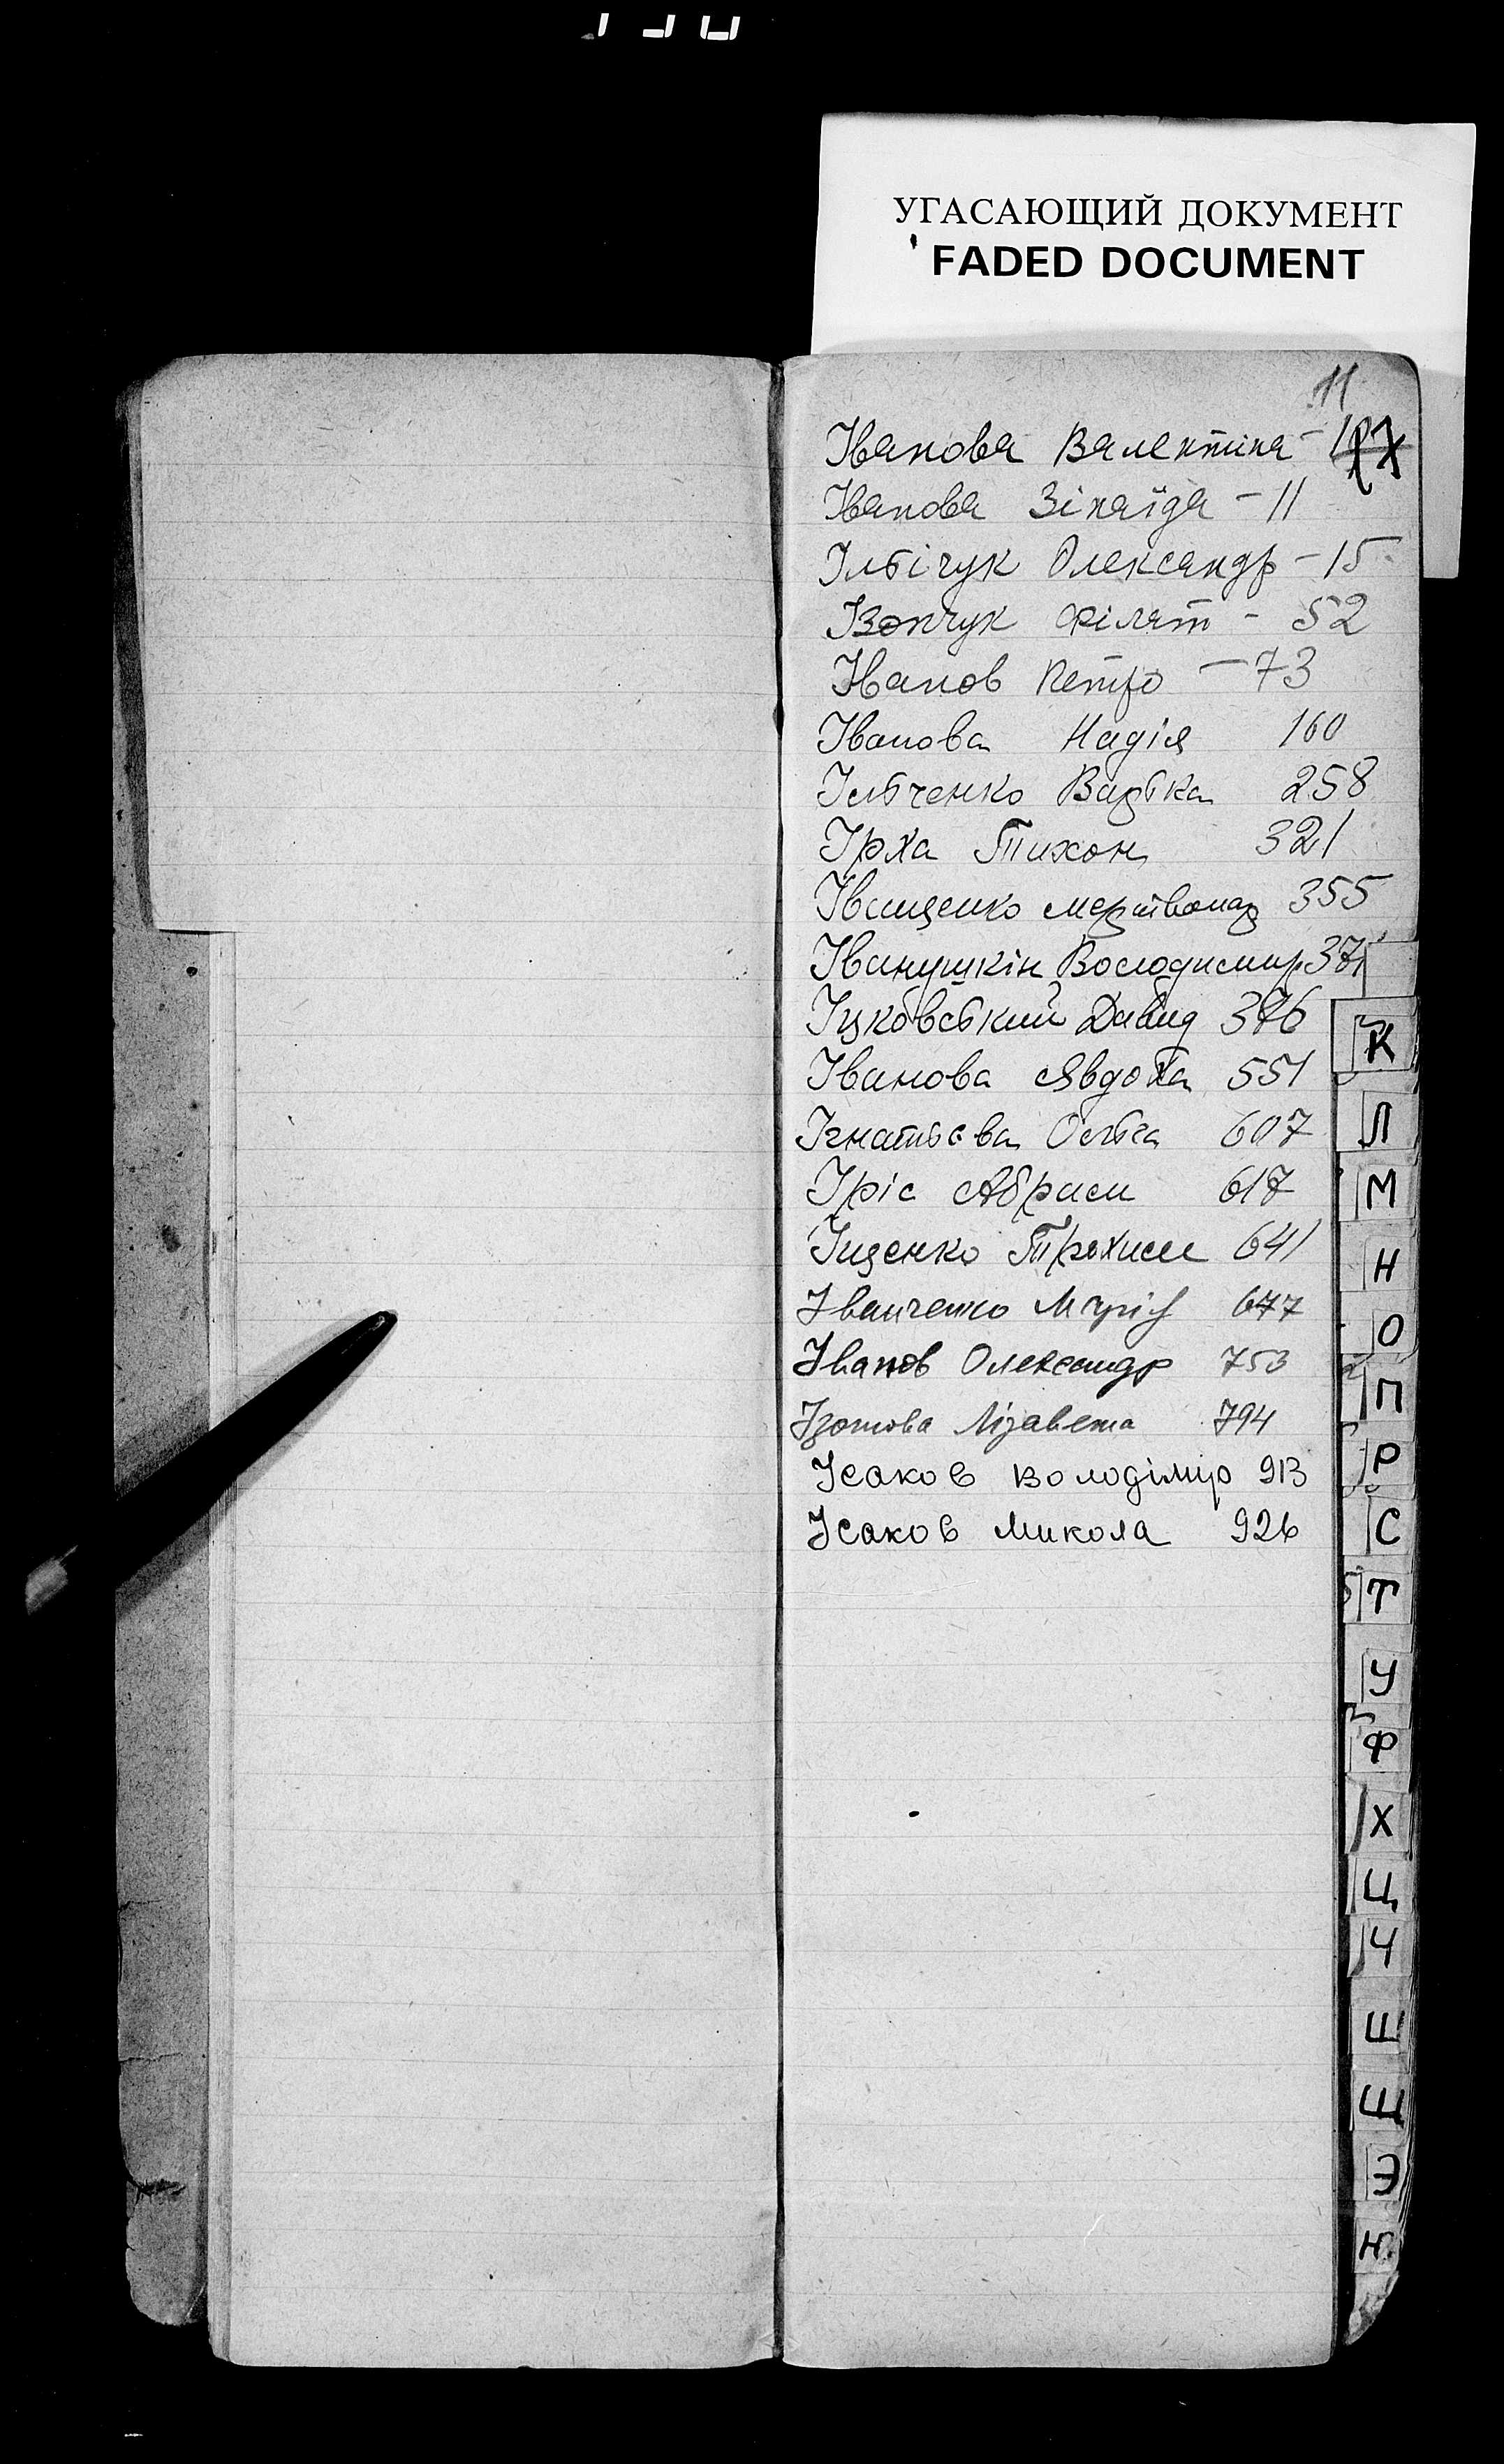 УГАСАЮЩИЙ ДОКУМЕНТ
FADED DOCUMENT
11
Іванова Валентіна -
Іванова Зінаїда - 11
Ільїчук Олександр - 15
Ізончук Філят - 52
Іванов Петро - 73
Іванова Надія 160
Ільченко Варька 258
Ірха Тихон 321
Іващенко 355
Іванушкін Володимир 371
Іцковський Давид 376
Іванова Явдоха 551
Ігнатьєва Ольга 607
Іріс Абрам 617
Іщенко Трохим 641
Іванченко 677
Іванов Олександр 753
Ізотова Лізавета 794
Ісаков Володімир 913
Ісаков Микола 926
К
Л
М
Н
О
П
Р
С
Т
У
Ф
Х
Ц
Ч
Ш
Щ
Э